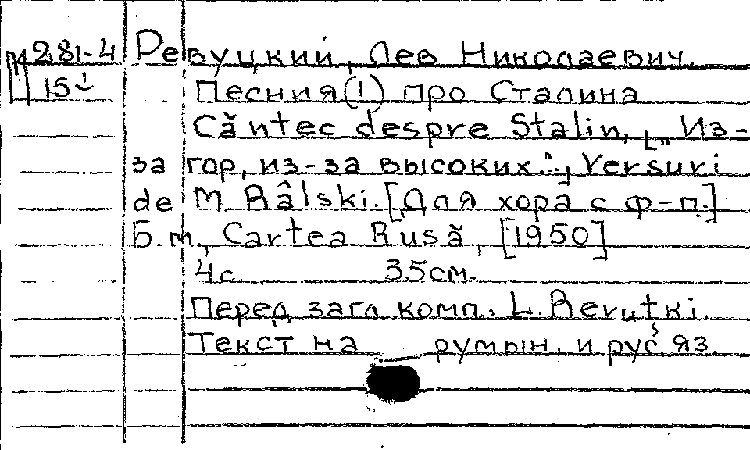 М281-4 Ревуцкий, Лев Николаевич.
15 Песния (!) про Сталина
Cǎntec despre Stalin, [„Из-
за гор, из-за высоких...", Versuri
de M. Râlski. [Для хора с ф-п.]
Б.м., Cartea Rusǎ, [1950]
4с 35см.
Перед загл. комп. L. Revuțki.
Текст на румын. и рус яз